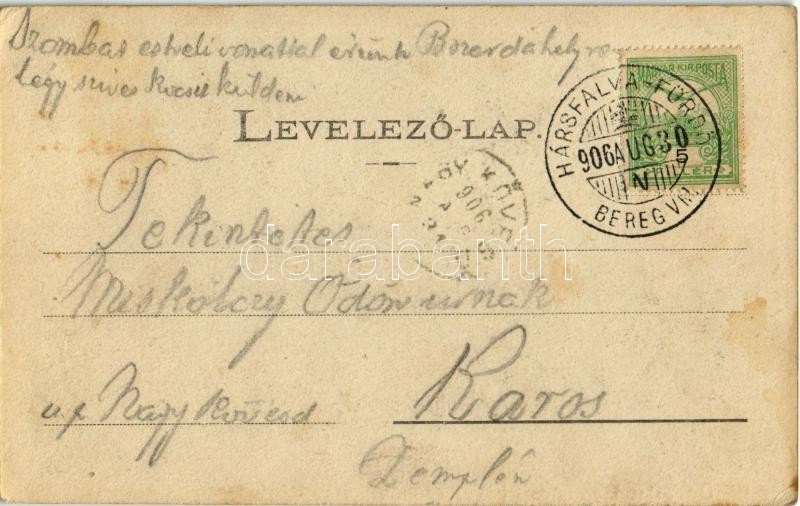 Szombat estveli vonattal érünk Bozerdahelyre
légy szives kocsit küldeni
MAGYAR KIR. POSTA
HÁRSFALVA-FÜRDŐ
906 AUG 30
N 5
BEREG VM.
LEVELEZŐ-LAP.
906
Tekintetes
darabanth
Miskolczy Ödön urnak
u.p Nagy Kövesd
Karos
Zemplén